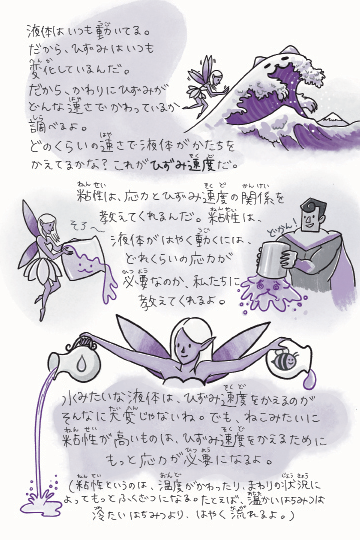 液体はいつも動いてる。
だから、ひずみはいつも
変化しているんだ。
だから、かわりにひずみが
どんな速さでかわっているか
調べるよ。
どのくらいの速さで液体がかたちを
かえてるかな？これがひずみ速度だ。
粘性は、応力とひずみ速度の関係を
教えてくれるんだ。粘性は、
液体がはやく動くには、
どれくらいの応力が
必要なのか、私たちに
教えてくれるよ。
そろ〜
どばーん！
水みたいな液体は、ひずみ速度をかえるのが
そんなに大変じゃないね。でも、ねこみたいに
粘性が高いものは、ひずみ速度をかえるために
もっと応力が必要になるよ。
(粘性というのは、温度がかわったり、まわりの状況に
よってもっとふくざつになる。たとえば、温かいはちみつは
冷たいはちみつより、はやく流れるよ。)